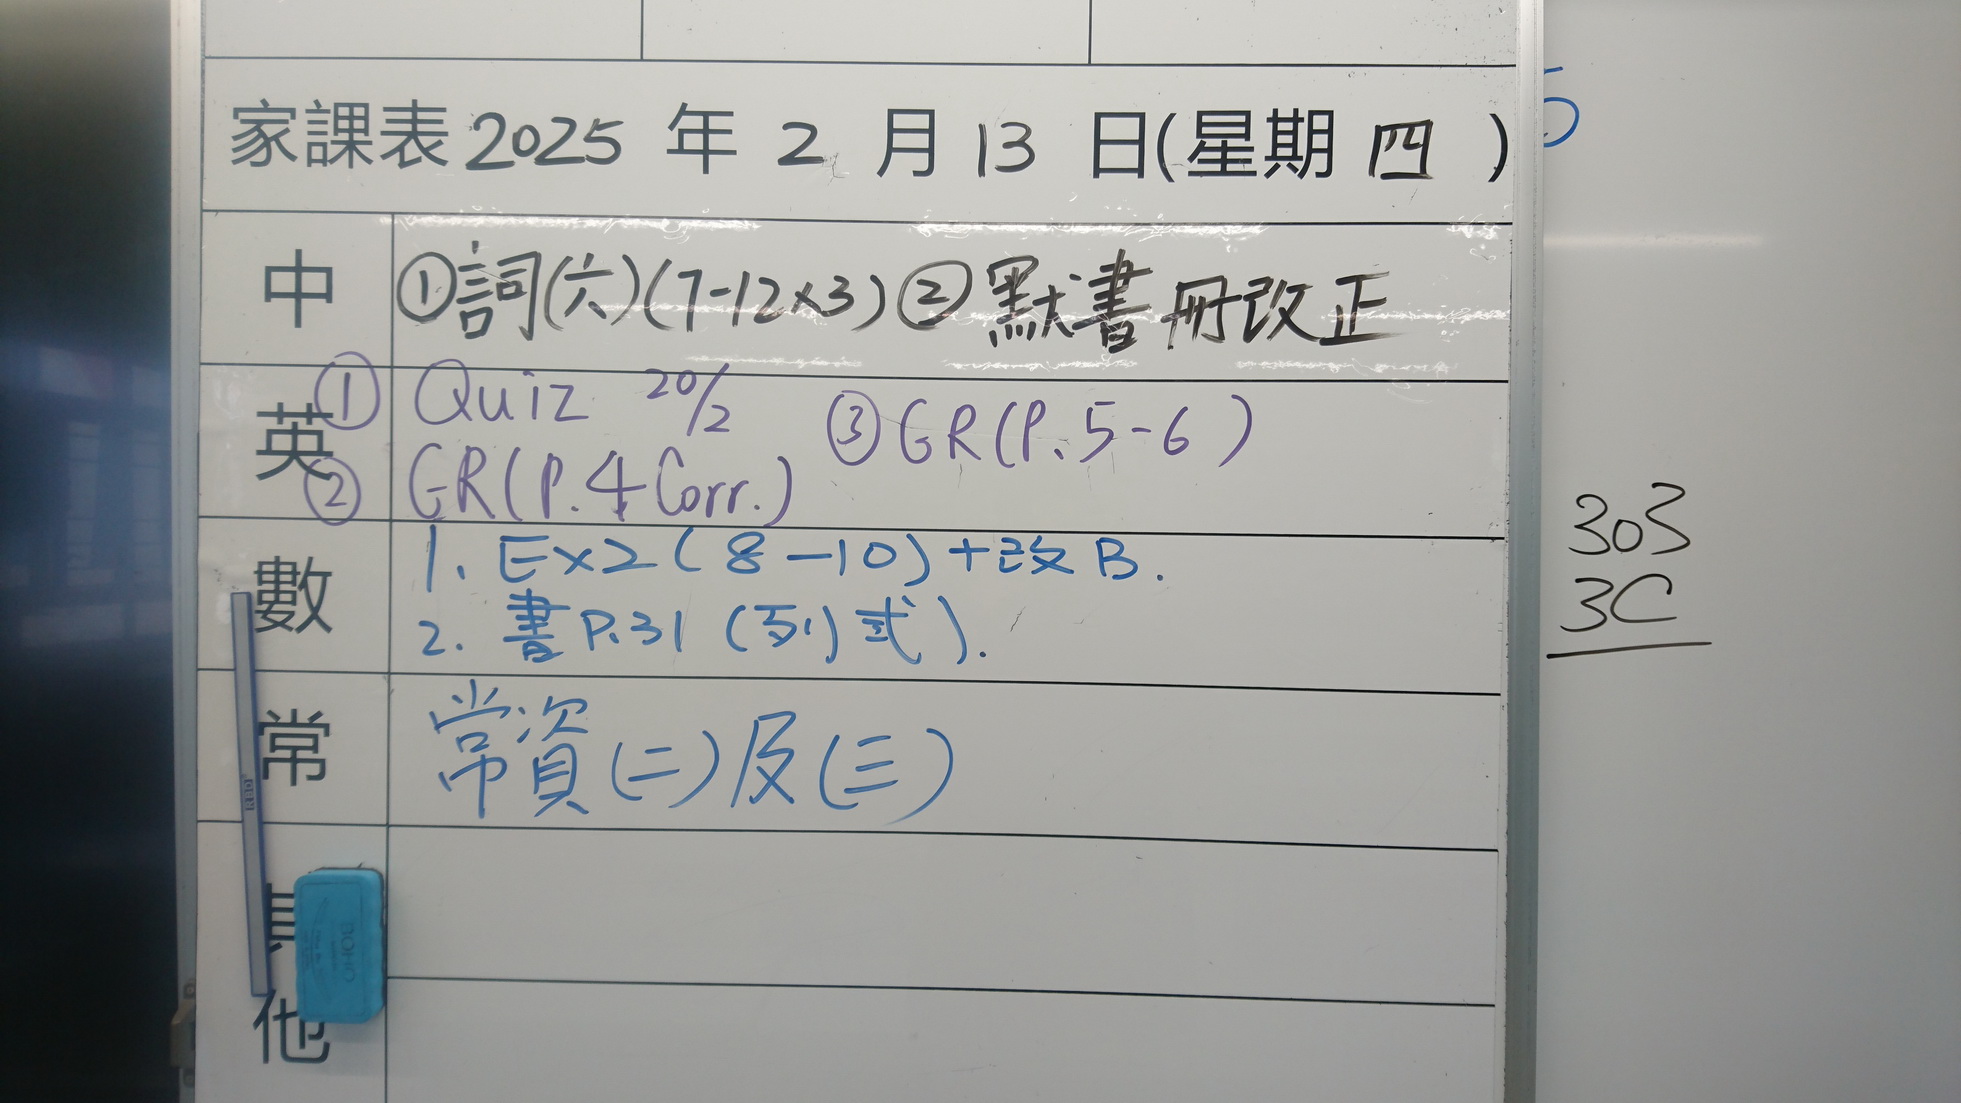 家課表 2025 年 2 月 13 日(星期 四 )
中 ①詞(六)(7-12×3) ②默書冊改正
英 ① Quiz 20/2 ③ GR(P.5-6)
② GR(P.4 Corr.)
數 1. Ex2(8-10)+改B.
2. 書P.31 (列式).
常 常資(二)及(三)
其他
303
3C